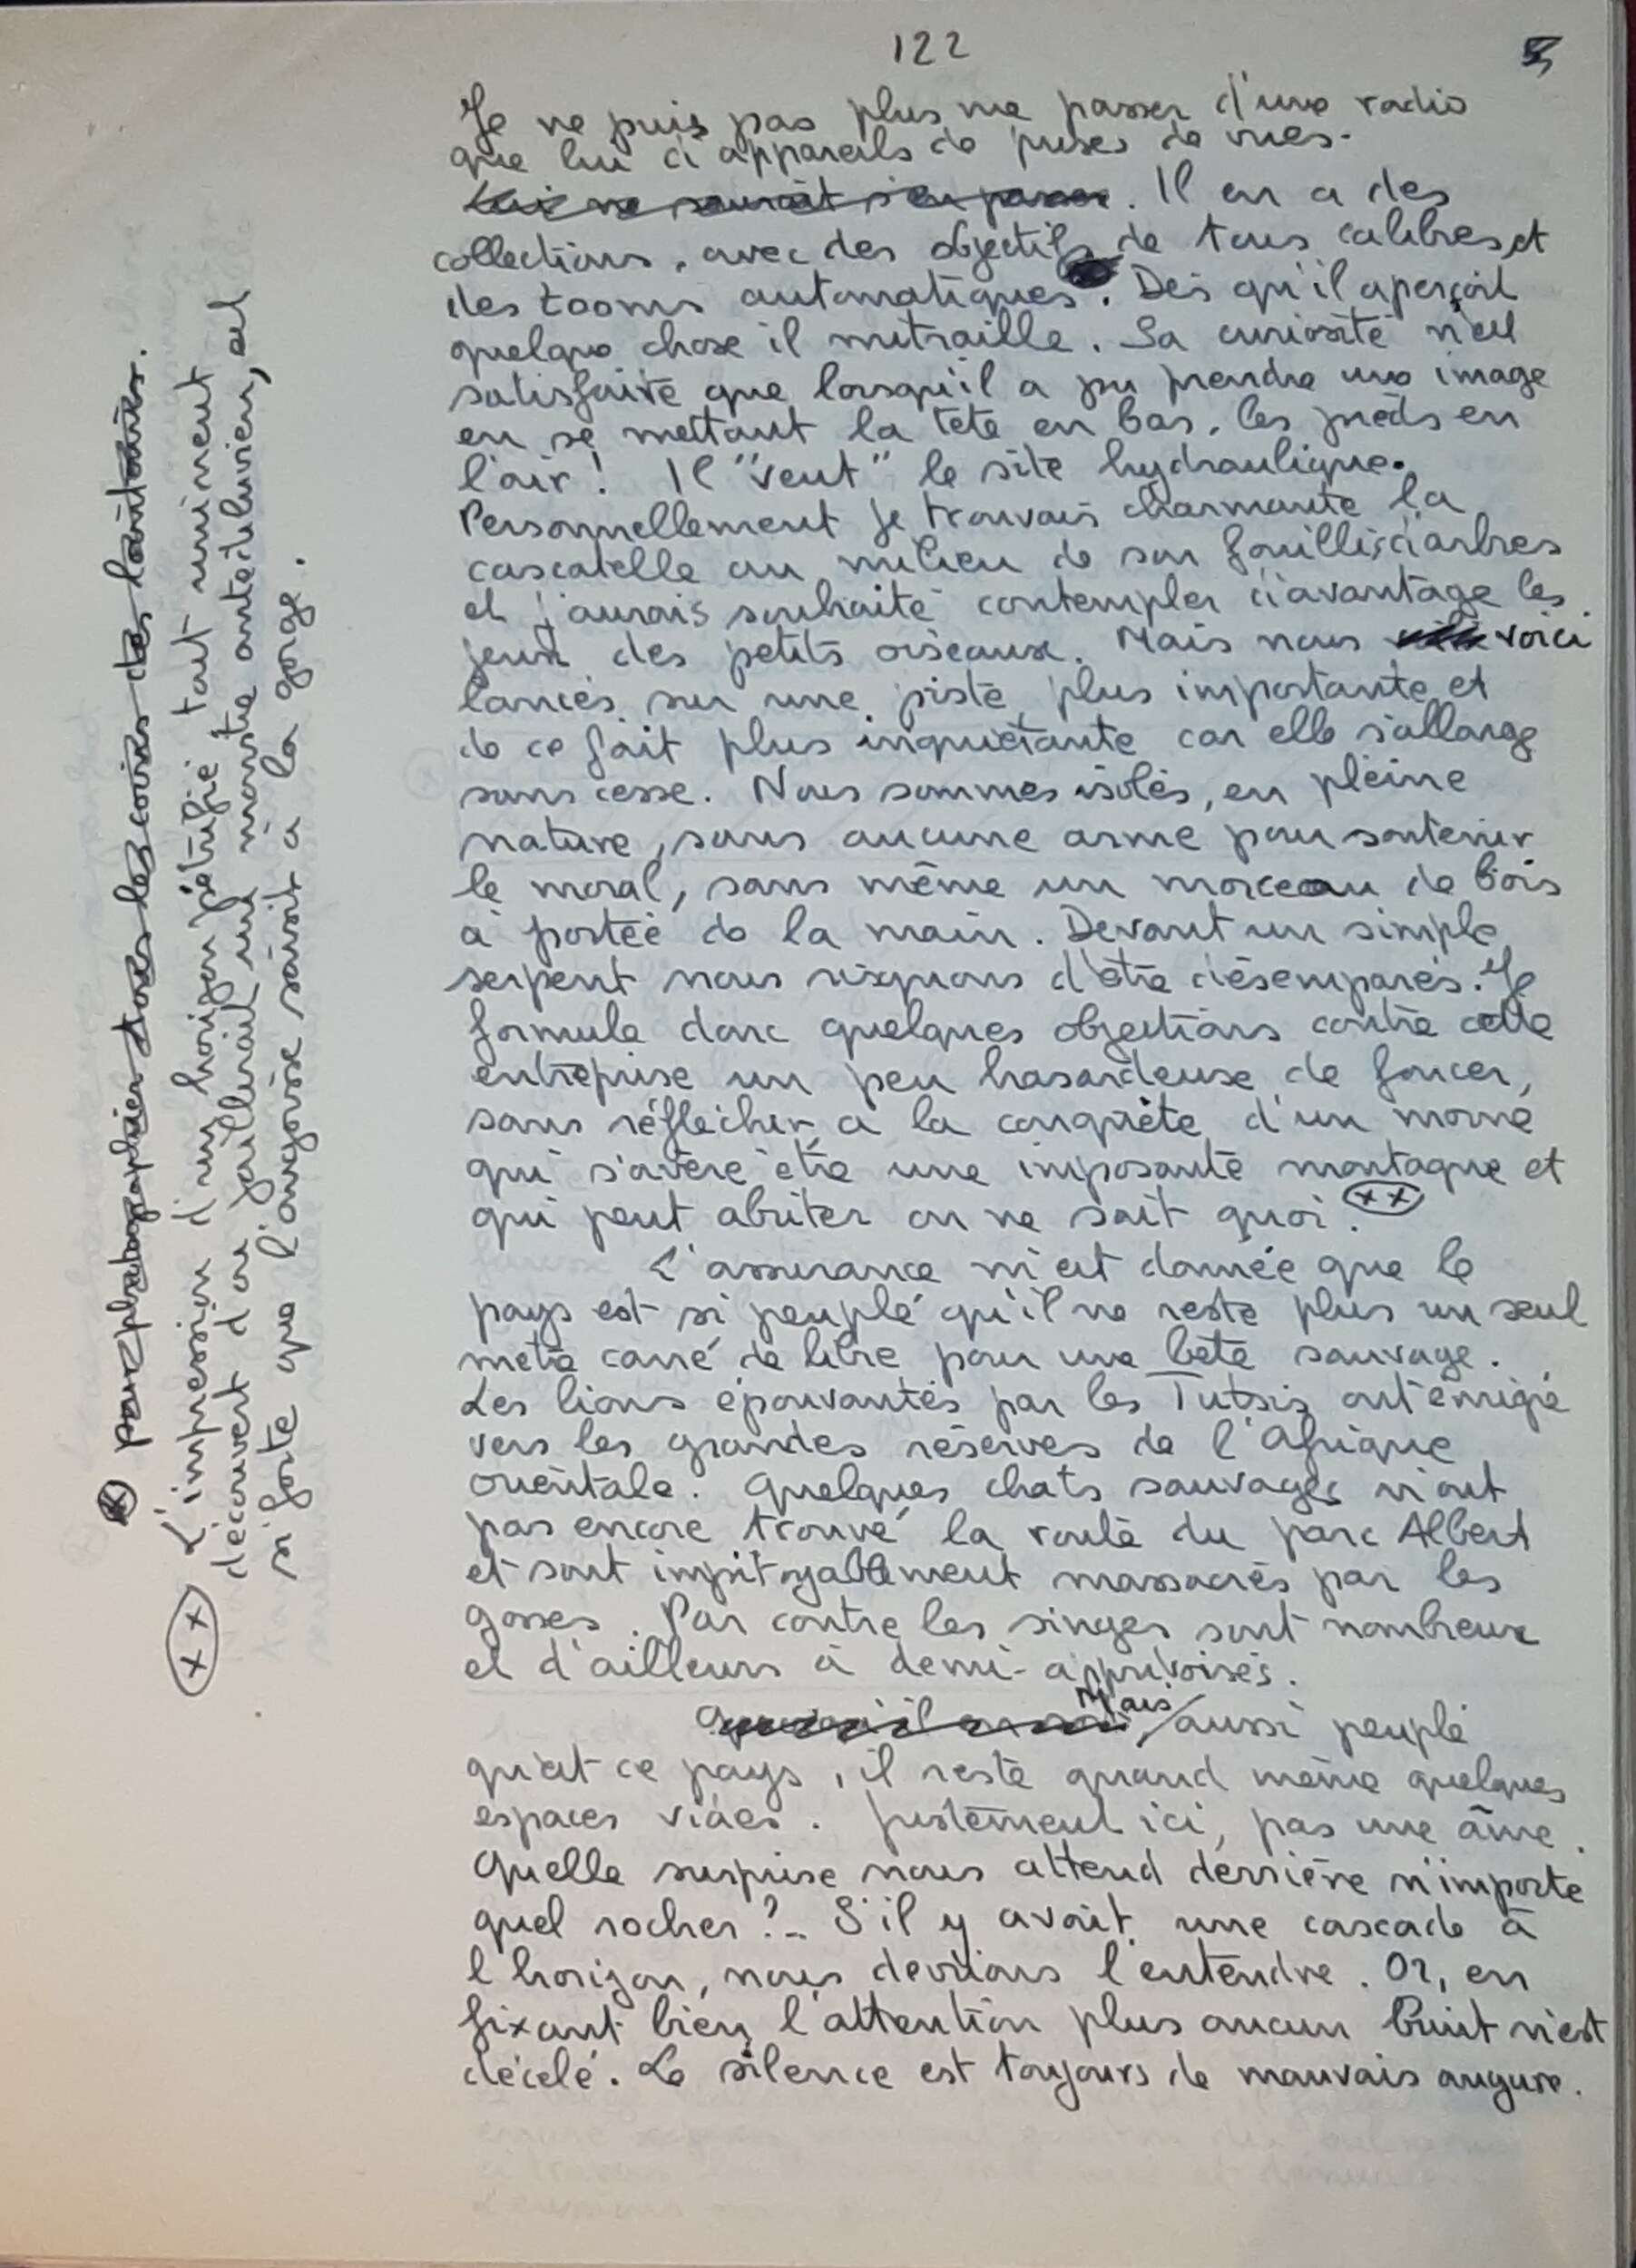 122
5
Je ne puis pas plus me passer d'une radio
que lui d'appareils de prises de vues.
Lui ne saurait s'en passer. Il en a des
collections, avec des objectifs de tous calibres et
des zooms automatiques. Dès qu'il aperçoit
quelque chose il mitraille. Sa curiosité n'est
satisfaite que lorsqu'il a pu prendre une image
en se mettant la tête en bas, les pieds en
l'air ! Il "veut" le site hydraulique.
Personnellement je trouvais charmante la
cascatelle au milieu de son fouillis d'arbres
et j'aurais souhaité contempler d'avantage les
jeux des petits oiseaux. Mais nous voici
lancés sur une piste plus importante et
de ce fait plus inquiétante car elle s'allonge
sans cesse. Nous sommes isolés, en pleine
nature, sans aucune arme pour soutenir
le moral, sans même un morceau de bois
à portée de la main. Devant un simple
serpent nous risquons d'être désemparés. Je
formule donc quelques objections contre cette
entreprise un peu hasardeuse de foncer,
sans réfléchir, à la conquête d'un morne
qui s'avère être une imposante montagne et
qui peut abriter on ne sait quoi. (xx)
L'assurance m'est donnée que le
pays est si peuplé qu'il ne reste plus un seul
mètre carré de libre pour une bête sauvage.
Les lions épouvantés par les Tutsis ont émigré
vers les grandes réserves de l'Afrique
orientale. Quelques chats sauvages n'ont
pas encore trouvé la route du parc Albert
et sont impitoyablement massacrés par les
gosses. Par contre les singes sont nombreux
et d'ailleurs à demi-apprivoisés.
Mais aussi peuplé
qu'est ce pays, il reste quand même quelques
espaces vides. Justement ici, pas une âme.
Quelle surprise nous attend derrière n'importe
quel rocher ? - S'il y avait une cascade à
l'horizon, nous devrions l'entendre. Or, en
fixant bien l'attention plus aucun bruit n'est
décelé. Le silence est toujours de mauvais augure.
(x) pour photographier tous les coins des lointains.
(xx) L'impression d'un horizon pétrifié tout uniment
découvert d'où jaillerait un monstre antédiluvien, est
si forte que l'angoisse saisit à la gorge.